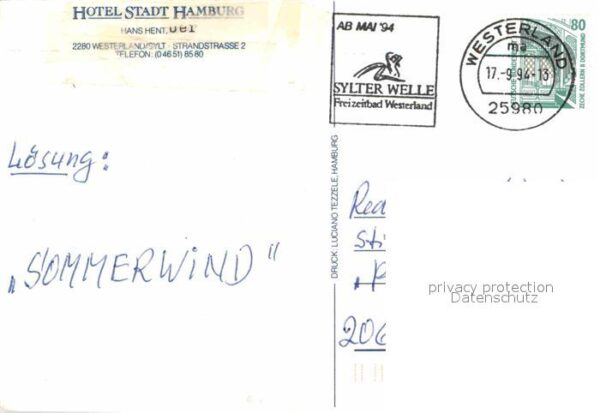 HOTEL STADT HAMBURG
HANS HENT.
2280 WESTERLAND/SYLT · STRANDSTRASSE 2
TELEFON: (0 46 51) 85 80
AB MAI '94
SYLTER WELLE
Freizeitbad Westerland
WESTERLAND
ma
17.-9.94-13
25980
80
ZECHE ZOLLERN II DORTMUND
DRUCK: LUCIANO TEZZELE, HAMBURG
Lösung:
„SOMMERWIND"
Red
Sti
206
privacy protection
Datenschutz